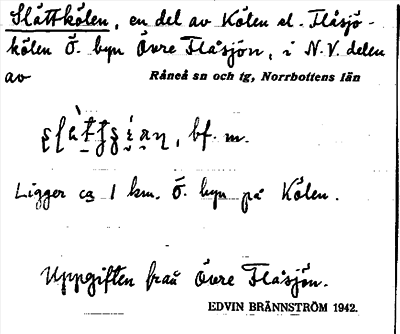 Slåttkölen, en del av Kölen el. Flåsjö-
kölen Ö. byn Övre Flåsjön, i N.V. delen
av Råneå sn och tg, Norrbottens län
bf. m.
Ligger ca 1 km. Ö. byn på Kölen.
Uppgiften från Övre Flåsjön.
EDVIN BRÄNNSTRÖM 1942.